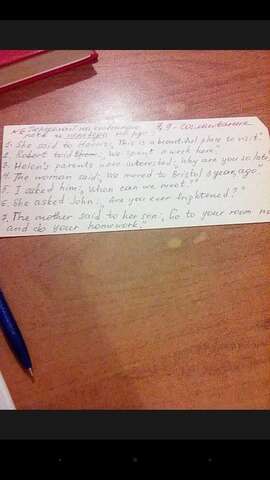 1. She said to Henry: „This is a beautiful place to visit."
2. Robert told them: „We spent a week here."
3. Helen's parents were interested: „Why are you so late
4. The woman said: „We moved to Bristol a year ago."
5. I asked him: „When can we meet."
6. She asked John: „Are you ever frightened?"
7. The mother said to her son: „Go to your room
and do your homework."